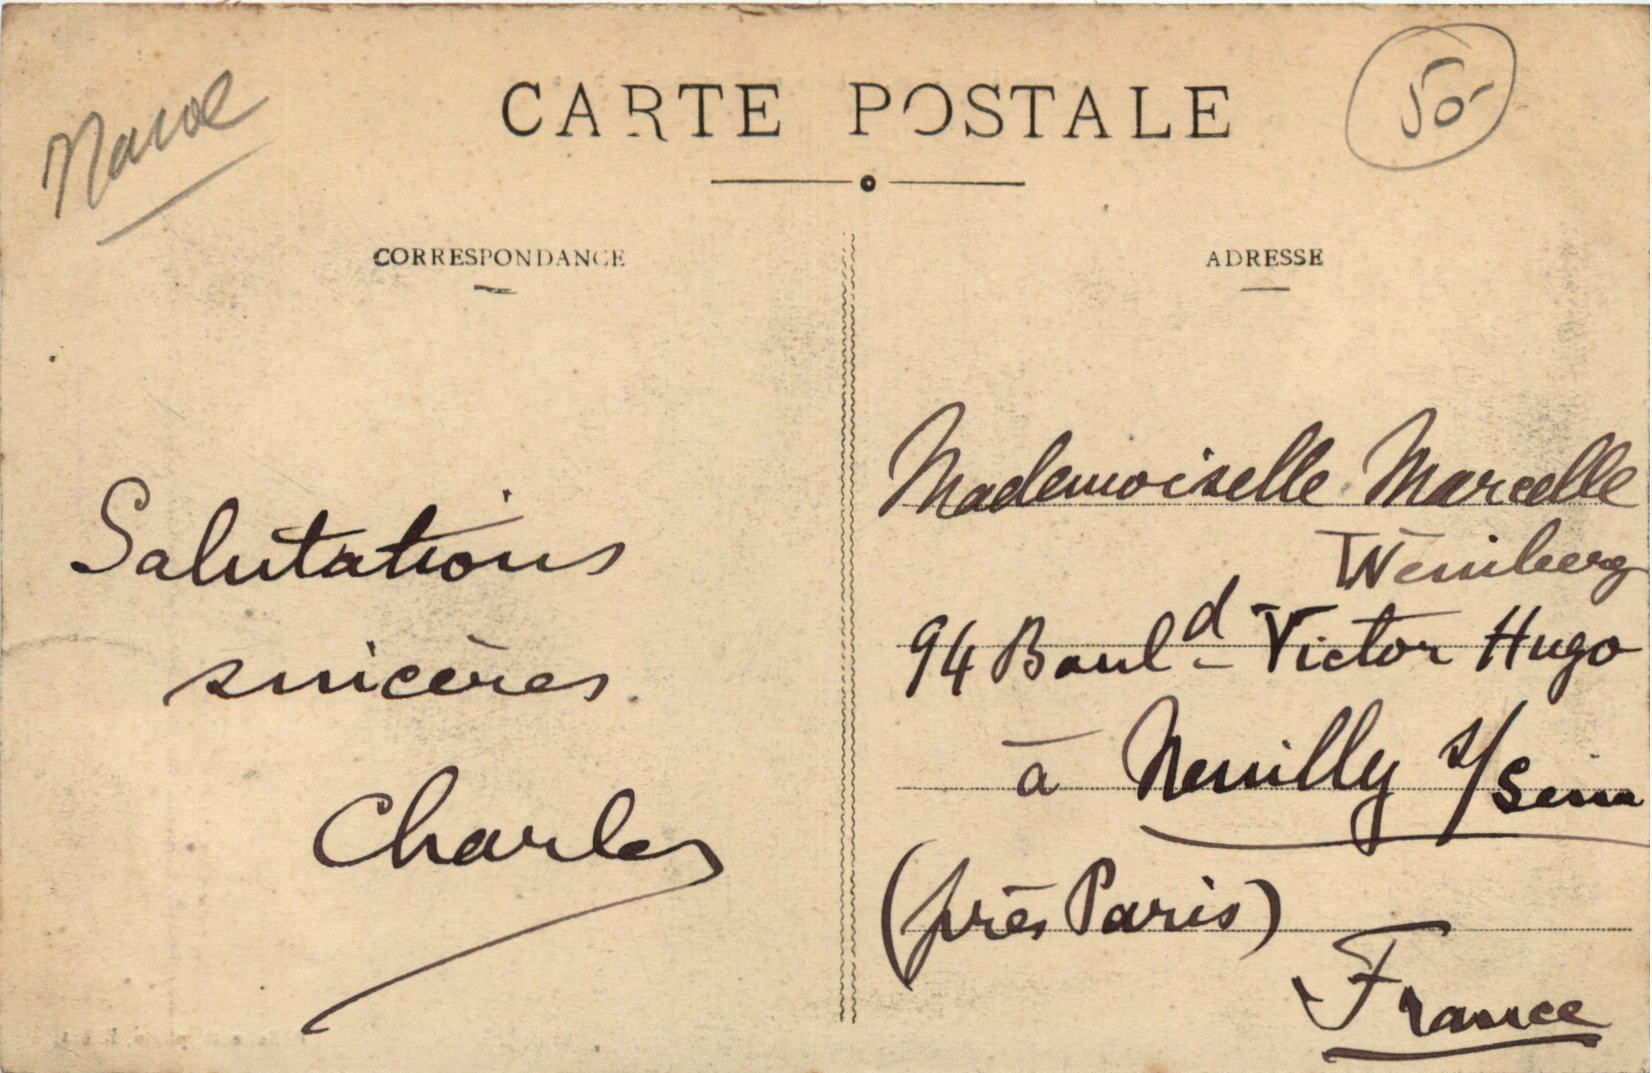 Maroc
CARTE POSTALE
50-
CORRESPONDANCE
ADRESSE
Salutations
sincères
Charles
Mademoiselle Marcelle
Weinberg
94 Boul d Victor Hugo
à Neuilly s/Seine
(près Paris)
France